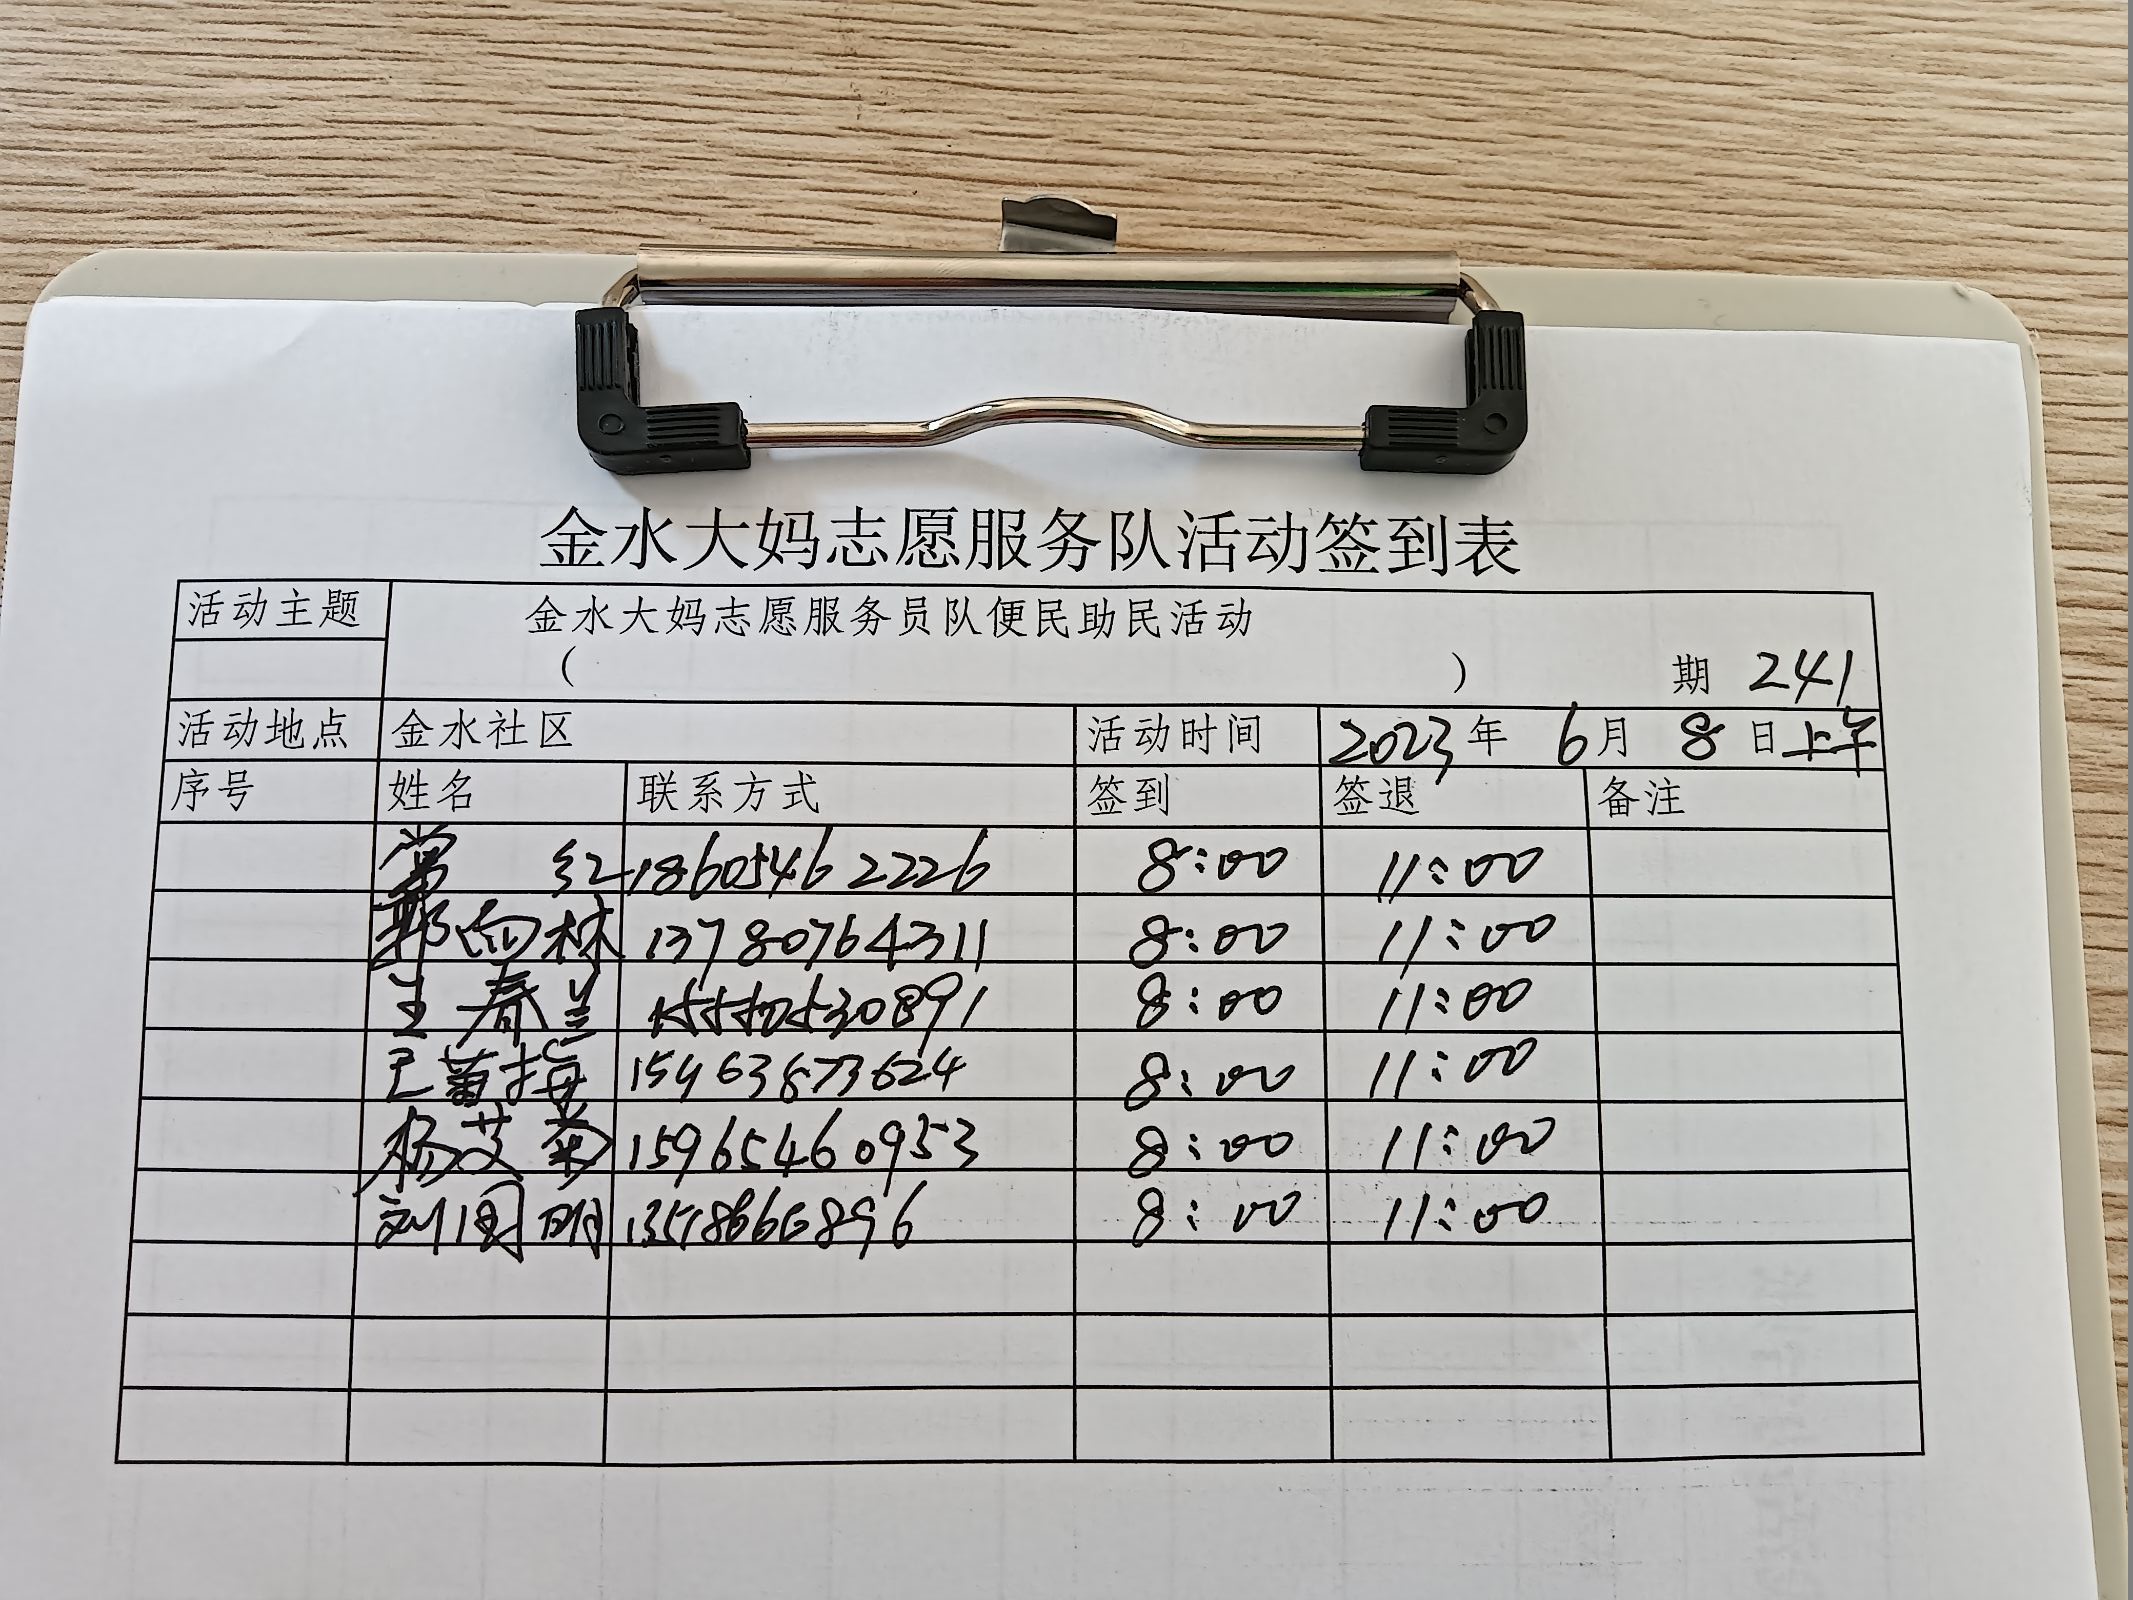 金水大妈志愿服务队活动签到表
活动主题 金水大妈志愿服务员队便民助民活动
( ) 期 241
活动地点 金水社区 活动时间 2023年 6月 8日上午
序号 姓名 联系方式 签到 签退 备注
常 红 18605462226 8:00 11:00
郭向林 13780764311 8:00 11:00
王春兰 8:00 11:00
15963873624 8:00 11:00
杨艾菊 15965460953 8:00 11:00
刘国明 8:00 11:00